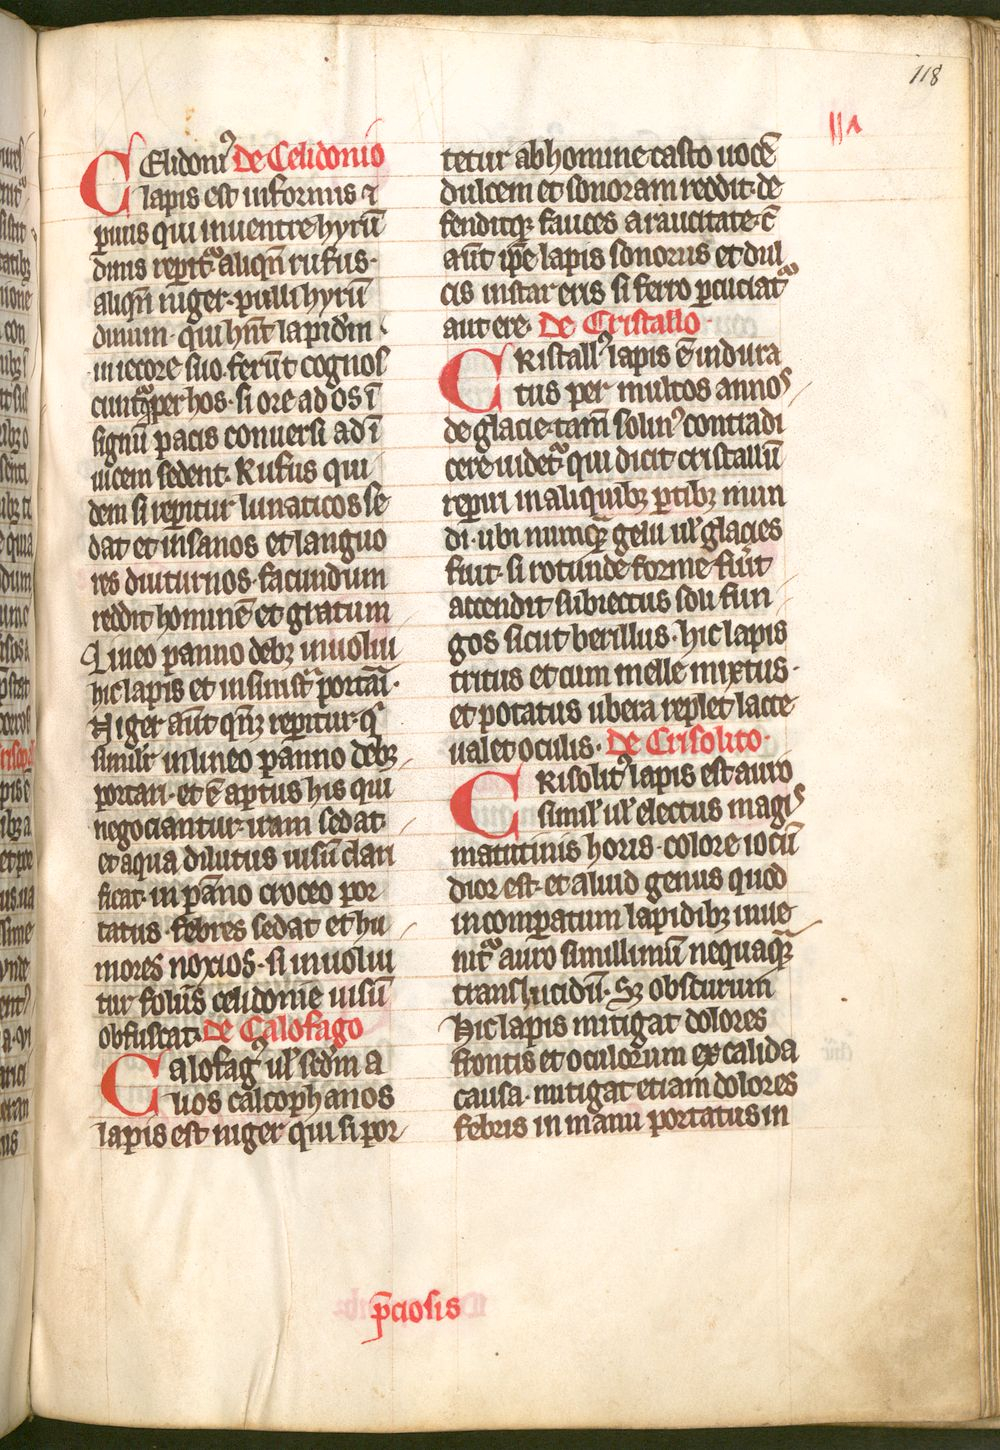 118
Celidoniꝰ De Celidonio
lapis est informis ⁊
puus qui in uentre hyrū
dinis reperitᷣ. aliqn̄ rufus.
aliqn̄ niger. pulli hyrū
dinum. qui hn̄t lapidem
in iecore suo. ferūt cognos
cuntᷣ per hos. si ore ad os ī
signū pacis conuersi ad ī
uicem sedent. Rufus qui
dem si reperitur lunaticos se
dat et insanos et languo
res diuturnos. facundum
reddit hominē et gratum
Lineo panno debꝫ inuolui
hic lapis et in sinistᷓ portari.
Niger aūt qn̄ꝫ reperitur. qͥ
similiter in lineo panno debꝫ
portari. et ē aptus his qui
negociantur. iram sedat.
et aqua dilutus uisū clari
ficat. in pāno croceo por
tatus. febres sedat et hu
mores noxios. si inuolui
tur foliis celidonie uisū
obfuscat. De Calofago
Calofagꝰ ul̄ scdm a
lios calcophanos
lapis est niger qui si por
tetur ab homine casto uocē
dulcem et sonoram reddit. de
fenditqꝫ fauces a raucitate. ē
aūt ip̄e lapis sonorus et dul
cis instar eris si ferro percuciatᷣ
aut ere. De Cristallo.
Cristallꝰ lapis ē indura
tus per multos annos
de glacie. tam̄ solinꝰ contradi
cere uidetᷣ qui dicit cristallū
reperiri in aliquibꝫ ptibꝫ mun
di. ubi numqᷓ gelu ul̄ glacies
fuit. si rotunde forme fuerit
accendit subiectus soli fun
gos sicut berillus. hic lapis
tritus et cum melle mixtus.
et potatus ubera replet lacte
ualet oculis. De Crisolito.
Crisolitꝰ lapis est auro
simil̄ ul̄ electus magis
matutinis horis. colore iocū
dior est. et aliud genus quod
incomparatum lapidibꝫ inue
nitᷣ auro simillimū nequaqᷓ
translucidū. Sꝫ obscurum
Hic lapis mitigat dolores
frontis et oculorum ex calida
causa. mitigat etiam dolores
febris in manu portatus in
p̄ciosis